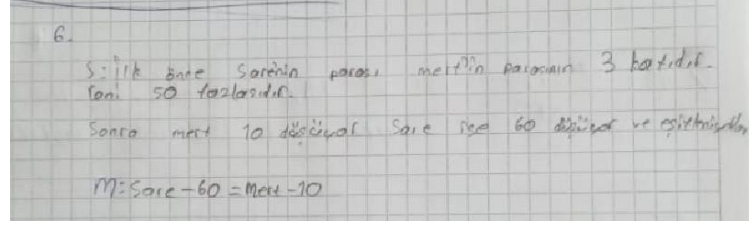 6.
S: ilk önce Sarenin parası mert'in parasının 3 katıdır.
50 fazlasıdır.
Sonra mert 10 düşüyor Sare ise 60 düşüyor ve
M: Sare - 60 = Mert - 10